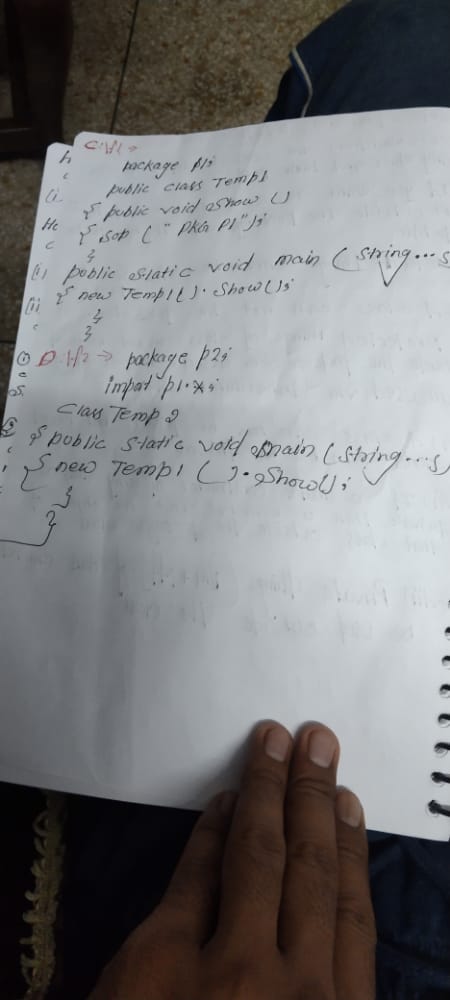 package p1;
public class Temp1
{ public void Show ()
{ Sop ( " PKG P1");
}
public static void main ( String... s
{ new Temp1(). Show();
}
}
package p2;
import p1.*;
Class Temp 2
{ public static void main ( String... s)
{ new Temp1 (). Show();
}
}